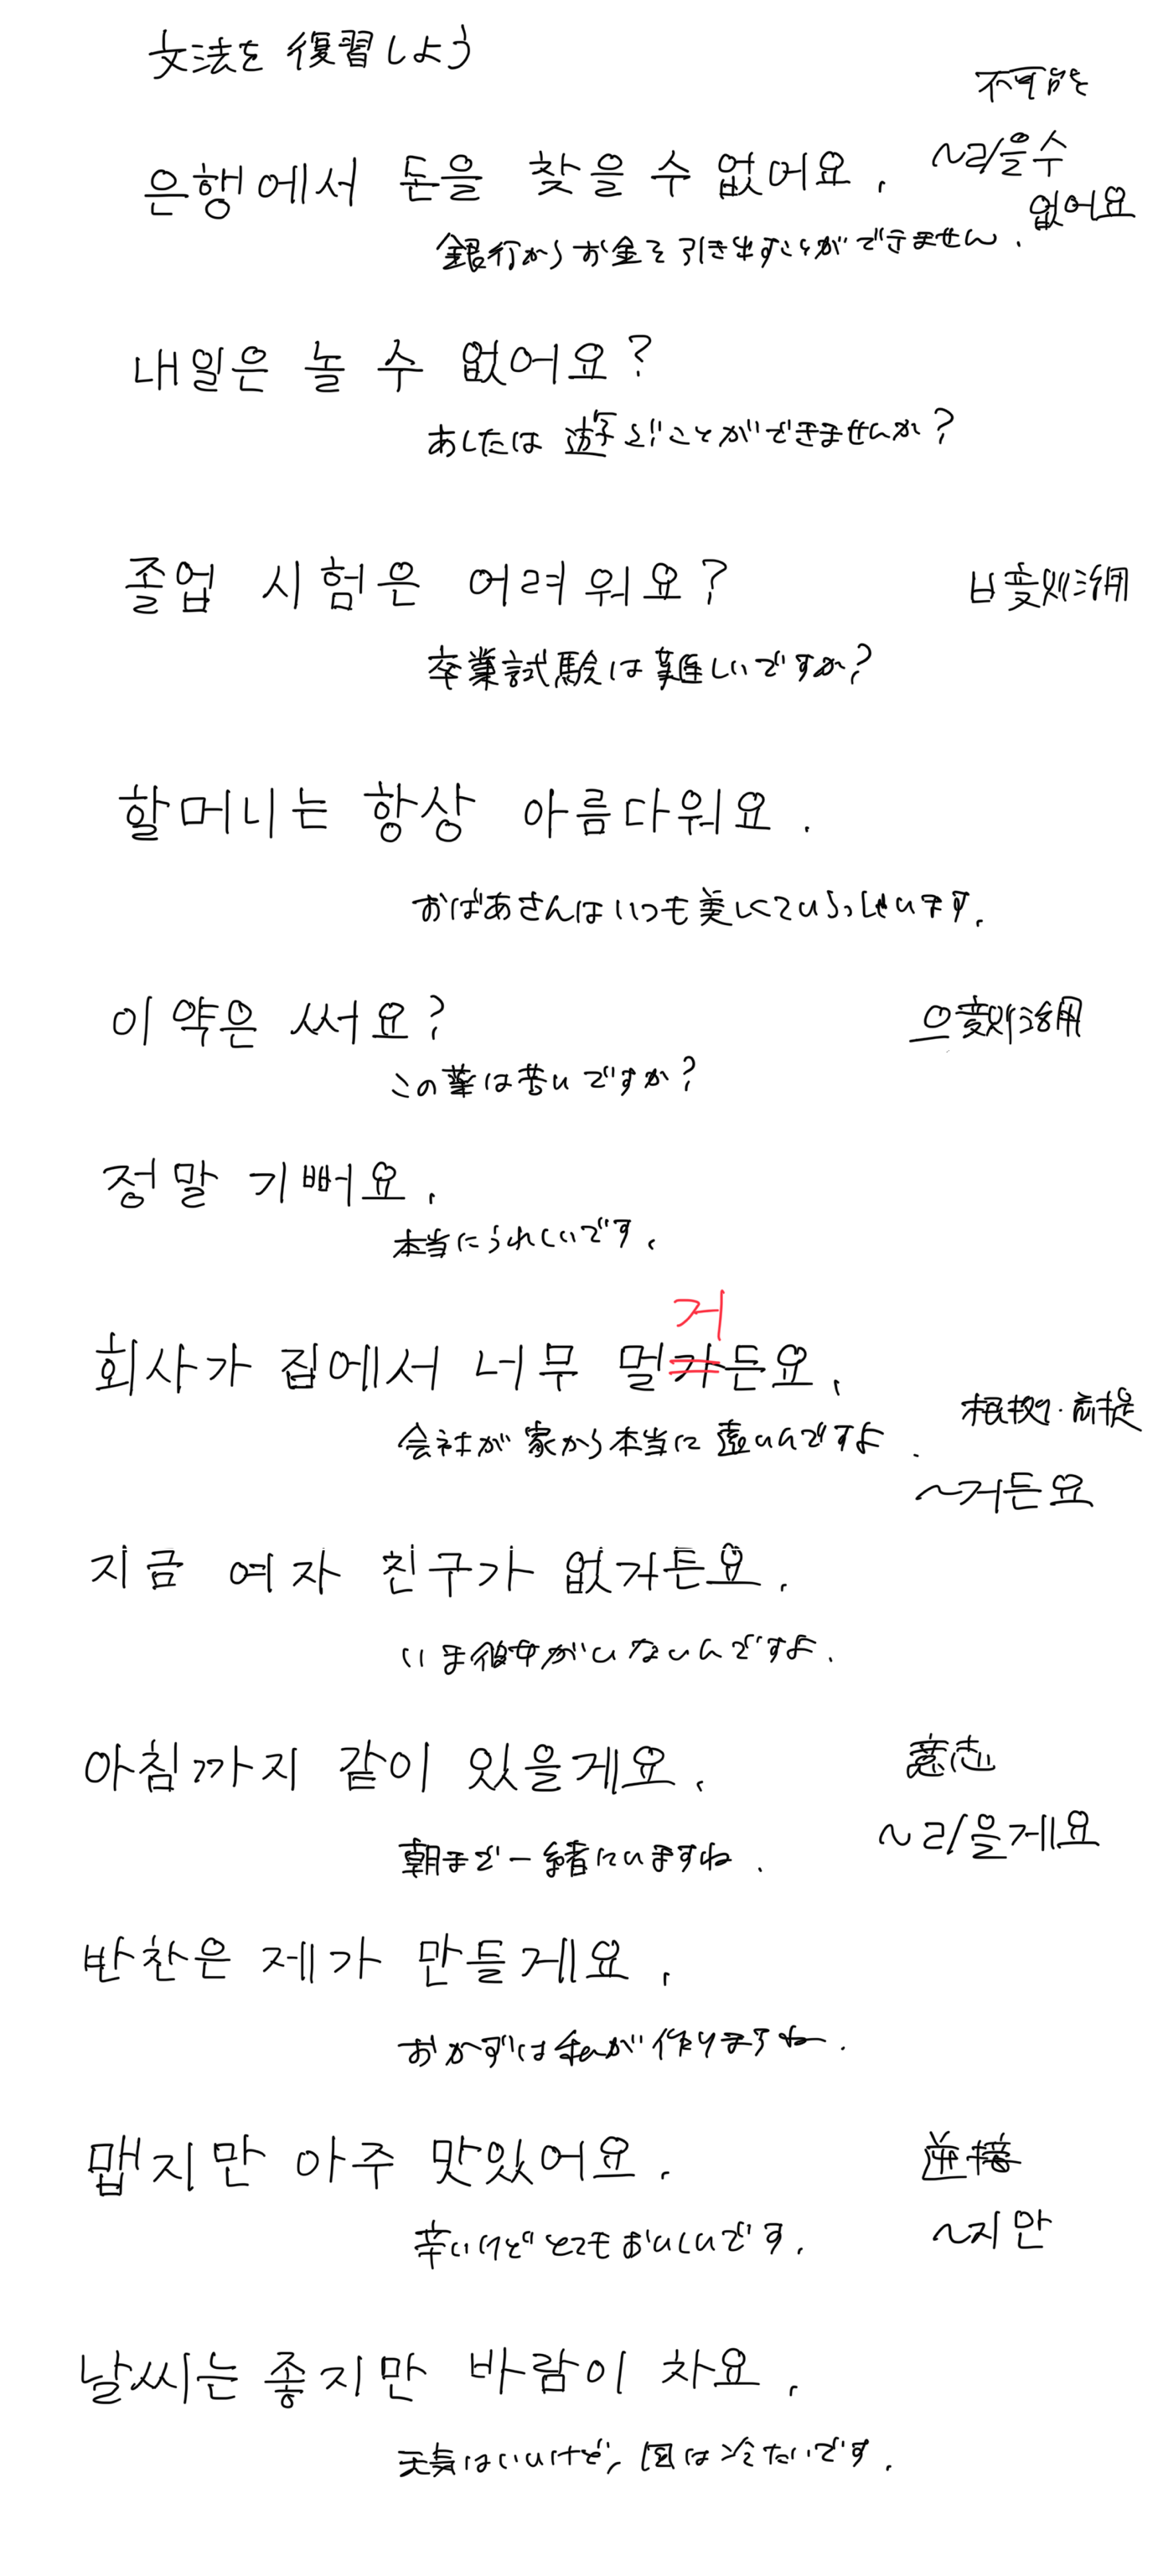 文法を復習しよう
不可能
~ㄹ/을수
없어요
은행에서 돈을 찾을 수 없어요.
銀行からお金を引き出すことができません.
내일은 놀 수 없어요?
あしたは遊ぶことができませんか?
졸업 시험은 어려워요?
ㅂ変則活用
卒業試験は難しいですか?
할머니는 항상 아름다워요.
おばあさんはいつも美しくていらっしゃいます.
이 약은 써요?
으変則活用
この薬は苦いですか?
정말 기뻐요.
本当にうれしいです.
거
회사가 집에서 너무 멀가든요.
会社が家から本当に遠いんですよ.
根拠・前提
~거든요
지금 여자 친구가 없가든요.
いま彼女がいないんですよ.
아침까지 같이 있을게요.
意志
~ㄹ/을게요
朝まで一緒にいますね.
반찬은 제가 만들게요.
おかずは私が作りますね.
맵지만 아주 맛있어요.
逆接
~지만
辛いけどとてもおいしいです.
날씨는 좋지만 바람이 차요.
天気はいいけど、風は冷たいです.